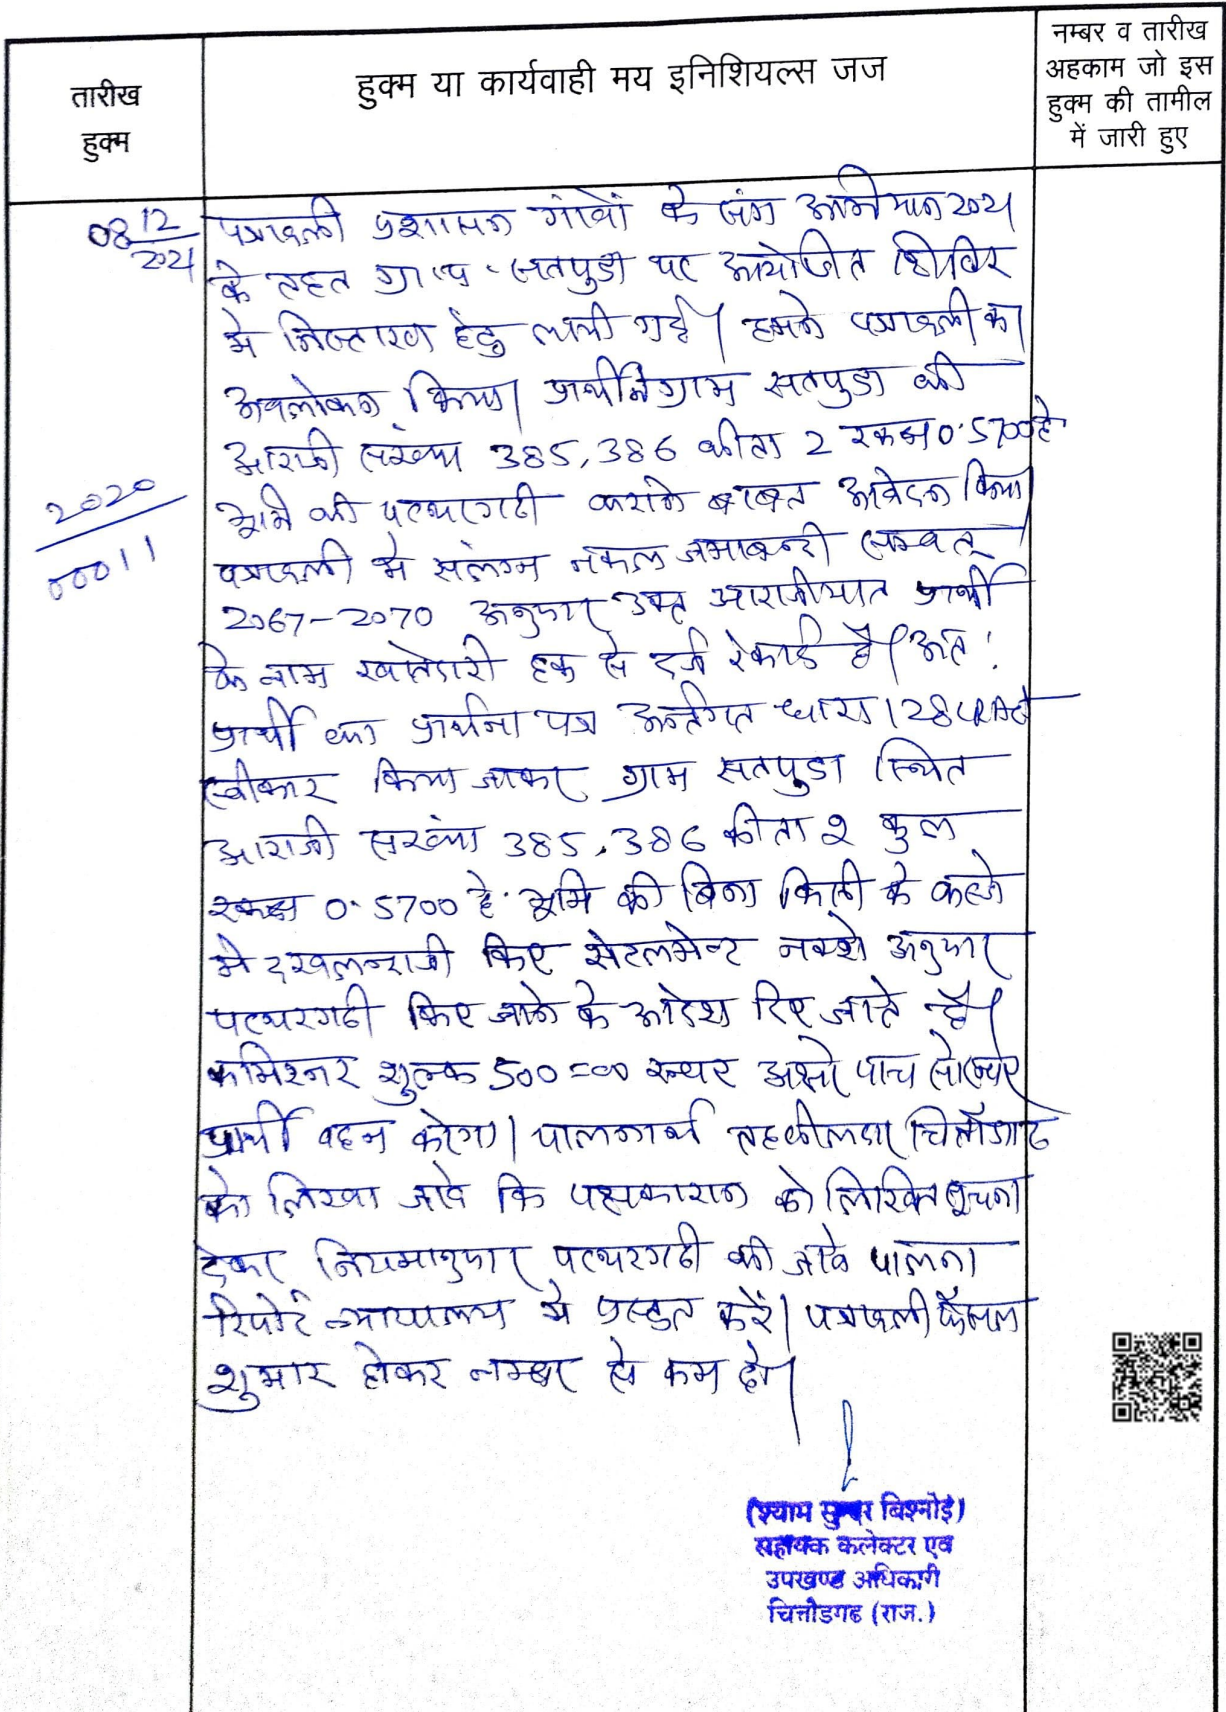 तारीख
हुक्म
हुक्म या कार्यवाही मय इनिशियल्स जज
नम्बर व तारीख
अहकाम जो इस
हुक्म की तामील
में जारी हुए
08 12
2021
2020
00011
पत्रावली प्रशासन गांवों के संग अभियान 2021
के तहत ग्रा॰प॰ सतपुडा पर आयोजित शिविर
मे निस्तारण हेतु लायी गई। हमने पत्रावली का
अवलोकन किया। प्रार्थी ने ग्राम सतपुडा की
आराजी संख्या 385,386 कीता 2 रकबा 0.5700 है
भूमि की पत्थरगढी कराने बाबत आवेदन किया।
पत्रावली मे सलंग्न नकल जमाबन्दी सम्वत्
2067-2070 अनुसार उक्त आराजीयात प्रार्थी
के नाम खातेदारी हक से दर्ज रेकार्ड है। अतः
प्रार्थी का प्रार्थना पत्र अन्तर्गत धारा 128 LR Act
स्वीकार किया जाकर ग्राम सतपुडा स्थित
आराजी संख्या 385,386 कीता 2 कुल
रकबा 0.5700 है. भूमि की बिना किसी के कब्जे
मे दखलन्दाजी किए सेटलमेन्ट नक्शे अनुसार
पत्थरगढी किए जाने के आदेश दिए जाते है।
कमिश्नर शुल्क 500=00 रूपए अक्षरे पाच सो रूपए
प्रार्थी वहन करेगा। पालनार्थ तहसीलदार चितौडगढ
को लिखा जावे कि पक्षकारान को लिखित सूचना
देकर नियमानुसार पत्थरगढी की जावे पालना
रिपोर्ट न्यायालय मे प्रस्तुत करें। पत्रावली फैसल
शुमार होकर नम्बर से कम हो।
(श्याम सुन्दर बिश्नोई)
सहायक कलेक्टर एवं
उपखण्ड अधिकारी
चित्तौडगढ (राज.)